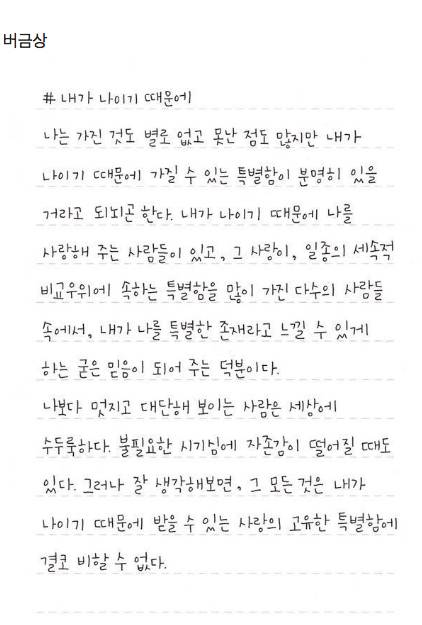 버금상
# 내가 나이기 때문에
나는 가진 것도 별로 없고 못난 점도 많지만 내가
나이기 때문에 가질 수 있는 특별함이 분명히 있을
거라고 되뇌곤 한다. 내가 나이기 때문에 나를
사랑해 주는 사람들이 있고, 그 사랑이, 일종의 세속적
비교우위에 속하는 특별함을 많이 가진 다수의 사람들
속에서, 내가 나를 특별한 존재라고 느낄 수 있게
하는 굳은 믿음이 되어 주는 덕분이다.
나보다 멋지고 대단해 보이는 사람은 세상에
수두룩하다. 불필요한 시기심에 자존감이 떨어질 때도
있다. 그러나 잘 생각해보면, 그 모든 것은 내가
나이기 때문에 받을 수 있는 사랑의 고유한 특별함에
결코 비할 수 없다.